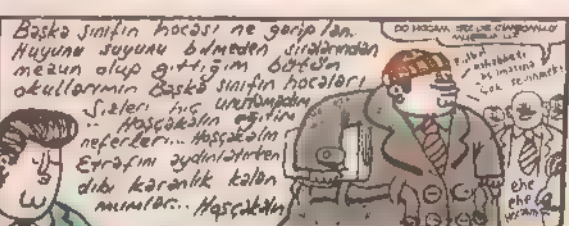 Başka sınıfın hocası ne garip lan.
Huyunu suyunu bilmeden sıralarından
mezun olup gittiğim bütün
okullarımın Başka sınıfın hocaları
Sizleri hiç unutmadım
.. Hoşçakalın eğitim
neferleri... Hoşçakalın
Etrafını aydınlatırken
dibi karanlık kalan
mumlar... Hoşçakalın
HOCAM
Futbol
muhabbeti
çok
ehe
ehe